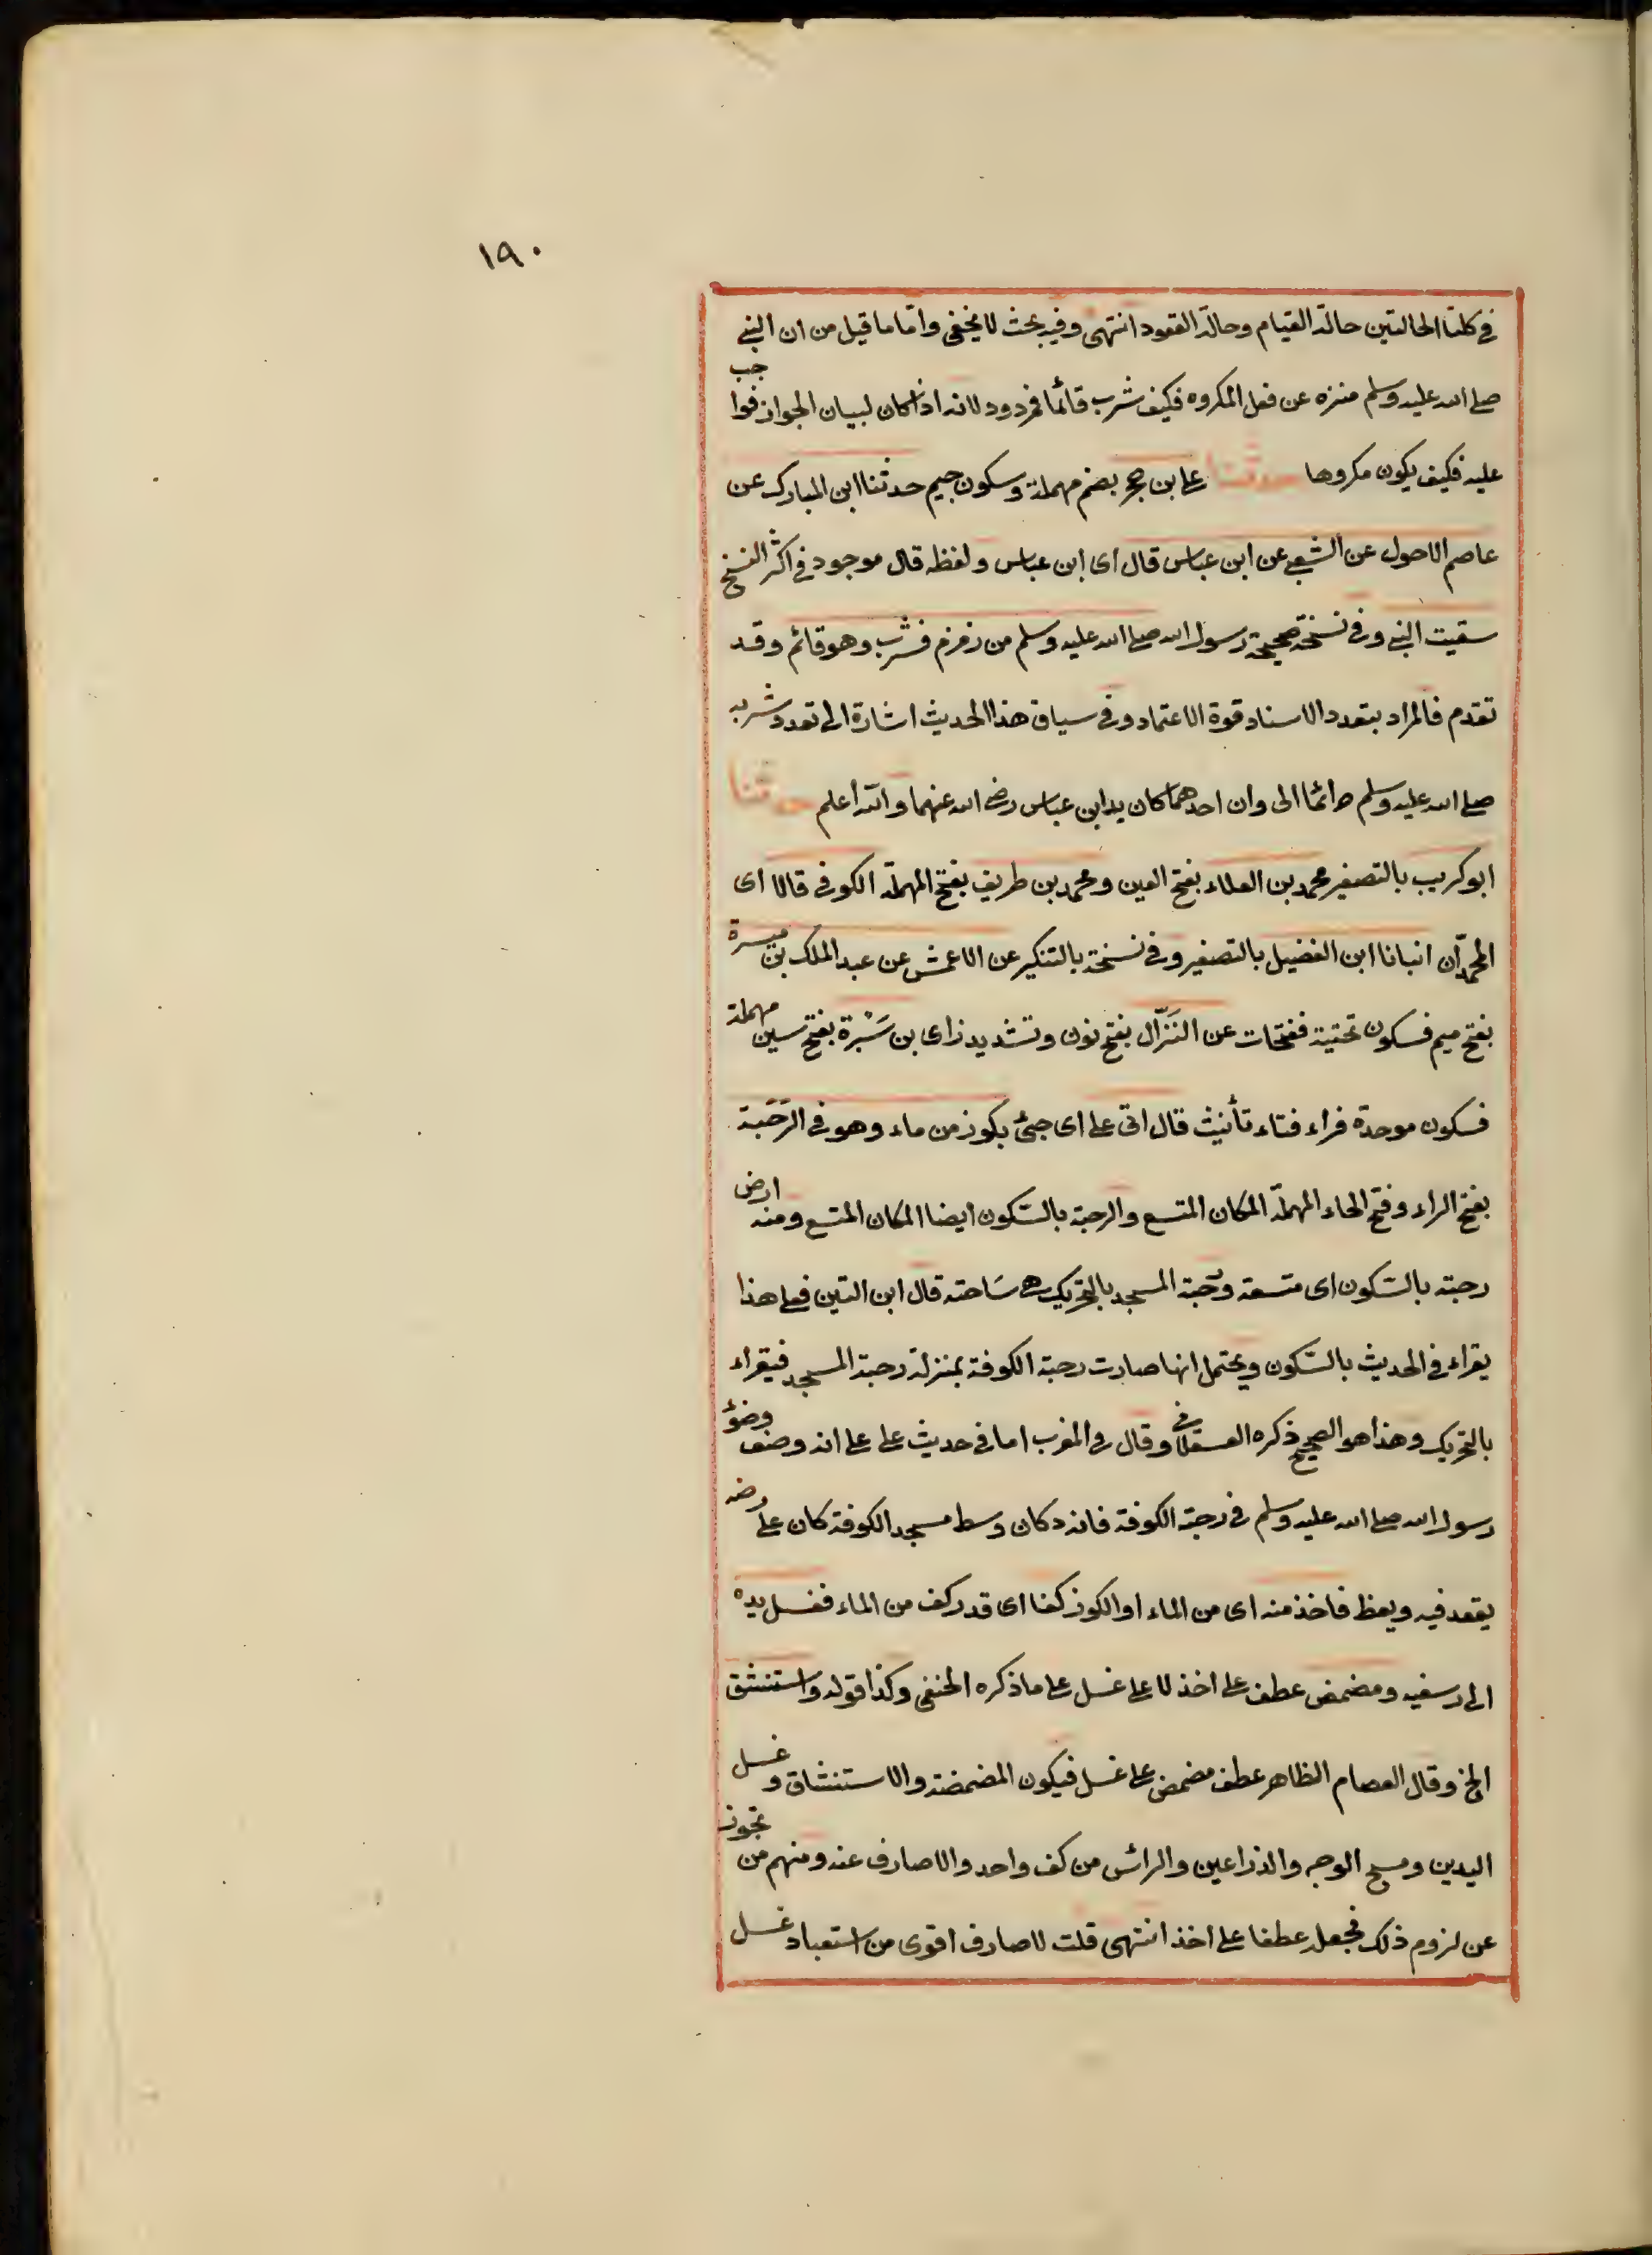 ١٩٠
في كلتا الحالتين حالة القيام وحالة القعود انتهى وفيه بحث لا يخفى واما ما قيل من ان النبي
صلى الله عليه وسلم منزه عن فعل المكروه فكيف شرب قائما فمردود لانه اذا كان لبيان الجواز فواجب
عليه فكيف يكون مكروها حدثنا على بن حجر بضم مهملة وسكون جيم حدثنا ابن المبارك عن
عاصم الاحول عن الشعبي عن ابن عباس قال اى ابن عباس ولفظه قال موجود في اكثر النسخ
سقيت النبي وفي نسخة صحيحة رسول الله صلى الله عليه وسلم من زمزم فشرب وهو قائم وقد
تقدم فالمراد بتعدد الاسناد قوة الاعتماد وفي سياق هذا الحديث اشارة الى تعدد شربه
صلى الله عليه وسلم دائما الى وان احدهما كان يد ابن عباس رضي الله عنهما والله اعلم حدثنا
ابو كريب بالتصغير محمد بن العلاء بفتح العين ومحمد بن طريف بفتح المهملة الكوفى قالا اى
المحمدان انبانا ابن الفضيل بالتصغير وفى نسخة بالتنكير عن الاعمش عن عبد الملك بن ميسرة
بفتح ميم فسكون تحتية ففتحات عن النَزّال بفتح نون وتشديد زاى بن سَبْرة بفتح سين مهملة
فسكون موحدة فراء فتاء تأنيث قال اتى على اى جئ بكوز من ماء وهو فى الرَحَبة
بفتح الراء وفتح الحاء المهملة المكان المتسع والرحبة بالسّكون ايضا المكان المتسع ومنه ارض
رحبة بالسّكون اى متسعة ورحَبة المسجد بالتحريك هى سَاحته قال ابن التين فعلى هذا
يقراء فى الحديث بالسّكون ويحتمل انها صارت رحبة الكوفة بمنزلة رحبة المسجد فيقراء
بالتحريك وهذا هو الصحيح ذكره العسقلانى وقال فى المغرب اما فى حديث على على انه وصف وضوء
رسول الله صلى الله عليه وسلم فى رحبة الكوفة فانه دكان وسط مسجد الكوفة كان على رضه
يقعد فيه ويعظ فاخذ منه اى من الماء او الكوز كفا اى قدر كف من الماء فغسل يديه
الى رسغيه ومضمض عطف على اخذ لا على غسل على ما ذكره الحنفى وكذا قوله واستنشق
الخ وقال العصام الظاهر عطف مضمض على غسل فيكون المضمضة والاستنشاق وغسل
اليدين ومسح الوجه والذراعين والرائس من كف واحد والاصارف عنه ومنهم من تجوز
عن لزوم ذلك فجعله عطفا على اخذ انتهى قلت لا صارف اقوى من استعباد غسل